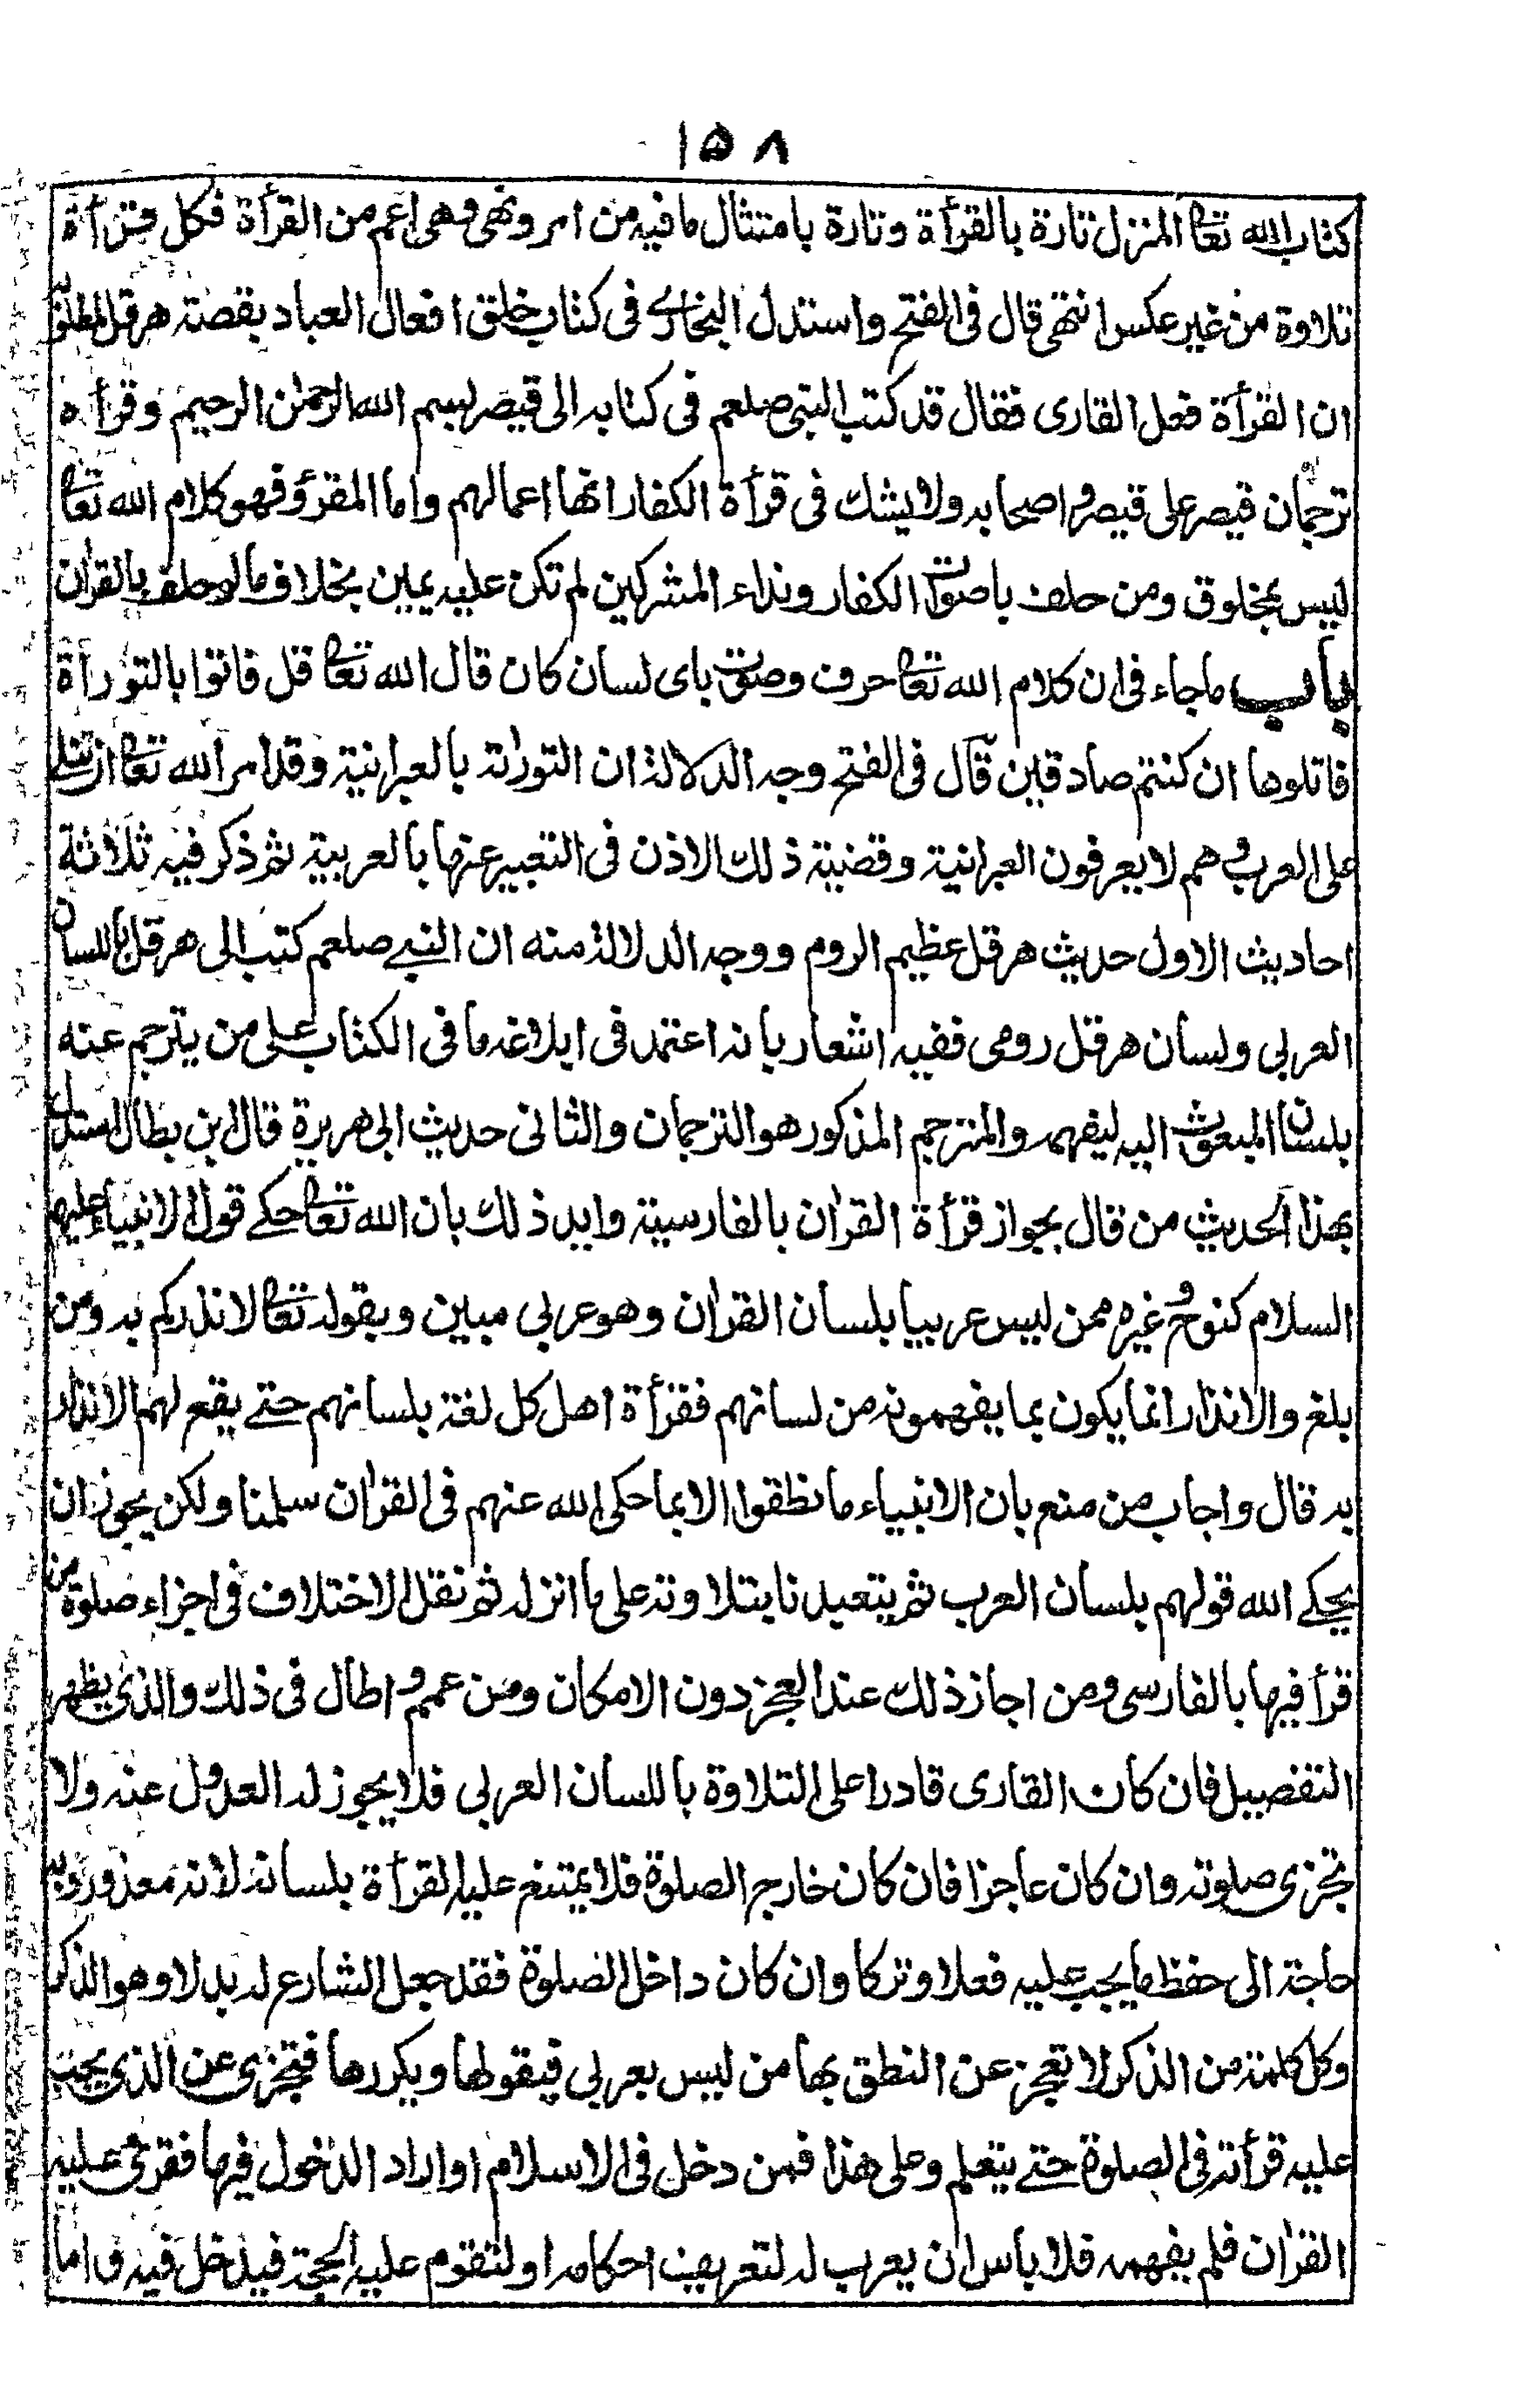 ۱۵۸
كتاب الله تعا المنزل تارة بالقرأة وتارة بامتثال ما فيه من امر ونهى وهى اعم من القرأة فكل قرأة
تلاوة من غير عكس انتهى قال فى الفتح واستدل البخارى فى كتاب خلق افعال العباد بقصة هرقل
ان القرأة فعل القارى فقال قد كتب النبى صلعم فى كتابه الى قيصر بسم الله الرحمٰن الرحيم وقرأه
ترجمان قيصر على قيصر واصحابه ولا يشك فى قرأة الكفار انها اعمالهم واما المقرؤ فهو كلام الله تعا
ليس بمخلوق ومن حلف باصوات الكفار ونداء المشركين لم تكن عليه يمين بخلاف ما لو حلف بالقراٰن
باب ما جاء فى ان كلام الله تعا حرف وصوت باى لسان كان قال الله تعا قل فاتوا بالتورٰاة
فاتلوها ان كنتم صادقين قال فى الفتح وجه الدلالة ان التورٰىة بالعبرانية وقد امر الله تعا ان تتلى
على العرب وهم لا يعرفون العبرانية وقضية ذلك الاذن فى التعبير عنها بالعربية ثم ذكر فيه ثلاثة
احاديث الاول حديث هرقل عظيم الروم ووجه الدلالة منه ان النبے صلعم كتب الى هرقل باللسان
العربى ولسان هرقل رومى ففيه اشعار بانه اعتمد فى ابلاغه ما فى الكتاب على من يترجم عنه
بلسان المبعوث اليه ليفهمه والمترجم المذكور هو الترجمان والثانى حديث ابى هريرة قال ابن بطال استدل
بهذا الحديث من قال بجواز قرأة القراٰن بالفارسية وايد ذلك بان الله تعا حكے قول الانبياء عليهم
السلام كنوح وغيره ممن ليس عربيا بلسان القراٰن وهو عربى مبين وبقوله تعا لانذركم به ومن
بلغ والانذار انما يكون بما يفهمونه من لسانهم فقرأة اهل كل لغة بلسانهم حتے يقع لهم الانذار
به قال واجاب من منع بان الانبياء ما نطقوا الا بما حكى الله عنهم فى القراٰن سلمنا ولكن يجوز ان
يحكے الله قولهم بلسان العرب ثم يتعبدنا بتلاوته على ما انزله ثم نقل الاختلاف فى اجزاء صلوة من
قرأ فيها بالفارسى ومن اجاز ذلك عند العجز دون الامكان ومن عمم واطال فى ذلك والذى يظهر
التفصيل فان كان القارى قادرا على التلاوة باللسان العربى فلا يجوز له العدول عنه ولا
تجزى صلوته وان كان عاجزا فان كان خارج الصلوة فلا يمتنع عليه القرأة بلسانه لانه معذور وبه
حاجة الى حفظ ما يجب عليه فعلا وتركا وان كان داخل الصلوة فقد جعل الشارع له بدلا وهو الذكر
وكل كلمة من الذكر لا تعجز عن النطق بها من ليس بعربى فيقولها ويكررها فتجزى عن الذى يجب
عليه قرأته فى الصلوة حتے يتعلم وعلى هذا فمن دخل فى الاسلام او اراد الدخول فيها فقرئ عليه
القراٰن فلم يفهمه فلا باس ان يعرب له لتعريف احكامه او لتقوم عليه الحجة فيدخل فيه واما